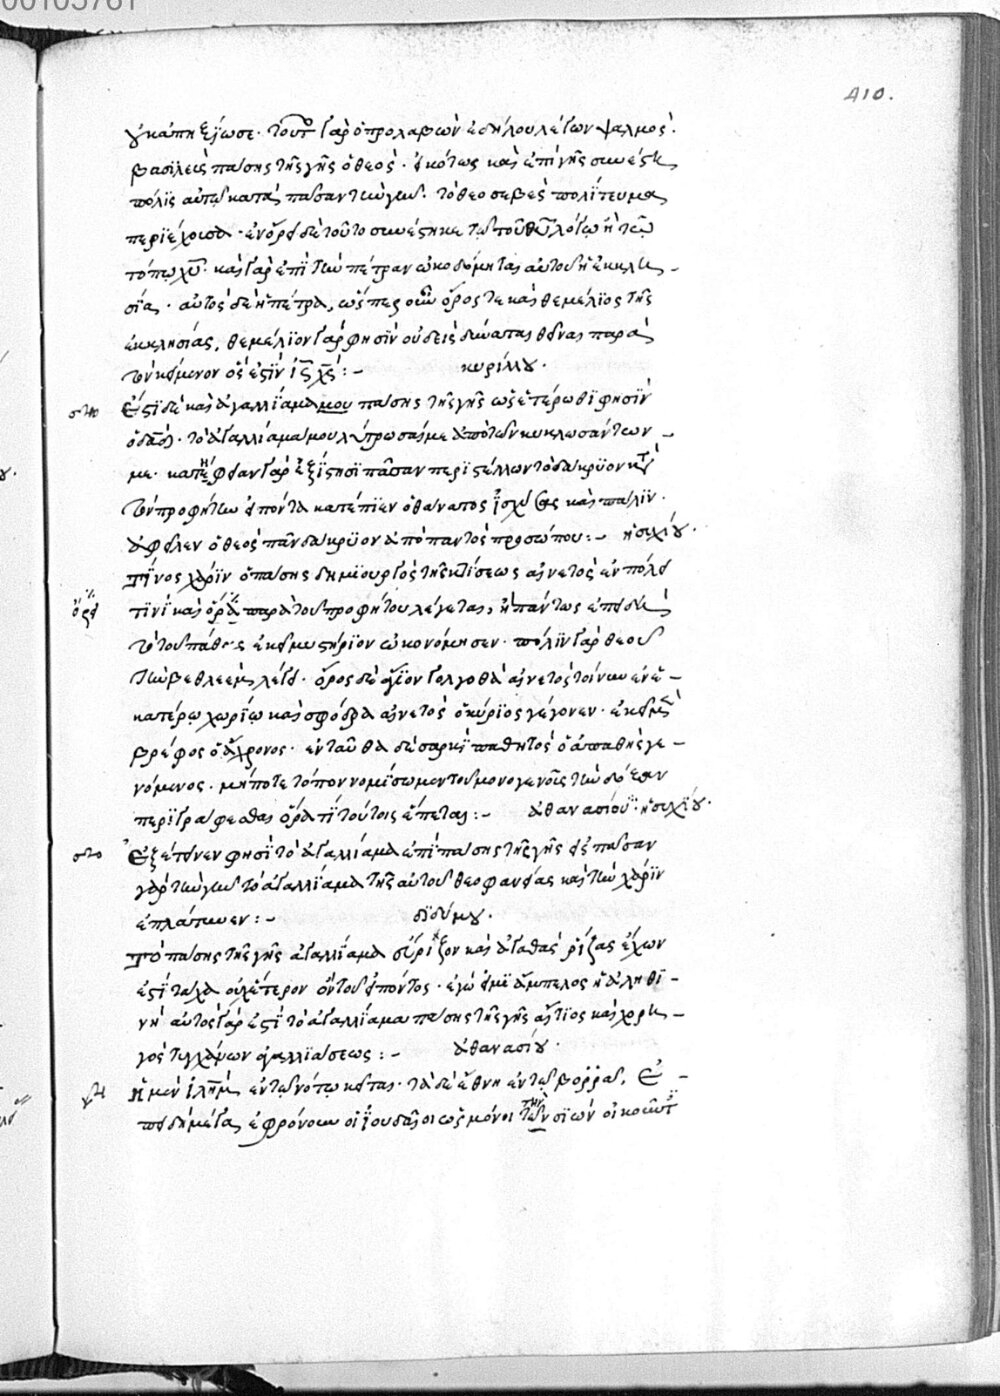 00105781
410.
γῆ κατηξίωσε. τοῦτο γὰρ ὁ προλαβὼν ἐδήλου λέγων ψαλμός.
βασιλεὺς πάσης τῆς γῆς ὁ θεός. εἰκότως καὶ ἐπὶ γῆς συνέστη
πόλις αὐτῷ κατὰ πᾶσαν τὴν γῆν. τὸ θεοσεβὲς πολίτευμα
περιέχουσα. ἐν ὄρει δὲ τοῦτο συνέστηκε τῷ τοῦ θυ λόγῳ ἢ τῷ
τόπῳ χυ. καὶ γὰρ ἐπὶ τὴν πέτραν ὠκοδόμηται αὐτοῦ ἡ ἐκκλη-
σία. αὐτὸς δὲ ἡ πέτρα, ὥσπερ οὖν ὄρος τε καὶ θεμέλιος τῆς
ἐκκλησίας, θεμέλιον γὰρ φησὶν οὐδεὶς δύναται θεῖναι παρὰ
τὸν κείμενον ὅς ἐστιν ις χς :- κυρίλλου.
Ἔστι δὲ καὶ ἀγαλλίαμα μου πάσης τῆς γῆς ὡς ἑτέρωθι φησὶν
ὁ δαδ. τὸ ἀγαλλίαμα μου λύτρωσαί με ἀπὸ τῶν κυκλωσάντων
με. γὰρ πᾶσαν περιστέλλων τὸ δάκρυον
τὸν προφήτην εἰπόντα κατέπιεν ὁ θάνατος ἰσχύσας καὶ πάλιν.
ἀφεῖλεν ὁ θεὸς πᾶν δάκρυον ἀπὸ παντὸς προσώπου :- ἡσυχίου.
Τίνος χάριν ὁ πάσης δημιουργὸς τῆς κτίσεως αἰνετὸς ἐν πόλει
τινὶ καὶ ὄρει παρὰ τοῦ προφήτου λέγεται, ἢ πάντως ἐπειδὴ
τὸ τοῦ πάθους ἐκεῖ μυστήριον ὠκονόμησεν. πόλιν γὰρ θεοῦ
τὴν βεθλεὲμ λέγει. ὄρος δὲ ἅγιον γολγοθὰ αἰνετὸς τοίνυν ἐν ἑ-
κατέρῳ χωρίῳ καὶ σφόδρα αἰνετὸς ὁ κύριος γέγονεν. ἐκεῖ μὲν
βρέφος ὁ ἄχρονος. ἐνταῦθα δὲ σαρκὶ παθητὸς ὁ ἀπαθὴς γε-
νόμενος. μήποτε τόπον νομίσωμεν τοῦ μονογενοῦς τὴν δόξαν
περιγράφεσθαι ὅρα τί τούτοις ἕπεται :- ἀθανασίου. ἡσυχίου.
Ἐξέτεινεν φησὶ τὸ ἀγαλλίαμα ἐπὶ πάσης τῆς γῆς εἰς πᾶσαν
γὰρ τὴν γῆν τὸ ἀγαλλίαμα τῆς αὐτοῦ θεοφανείας καὶ τὴν χάριν
ἐπλάτυνεν :- διδύμου.
Τὸ πάσης τῆς γῆς ἀγαλλίαμα εὔριζον καὶ ἀγαθὰς ῥίζας ἔχων
ἐστὶ τάχα οὐχ ἕτερον ὂν τοῦ εἰπόντος. ἐγώ εἰμι ἄμπελος ἡ ἀληθι-
νὴ αὐτὸς γὰρ ἐστὶ τὸ ἀγαλλίαμα πάσης τῆς γῆς αἴτιος καὶ χορη-
γὸς τυγχάνων ἀγαλλιάσεως :- ἀθανασίου.
Ἡ μὲν ιλημ ἐν τῷ νότῳ κεῖται. τὰ δὲ ἔθνη ἐν τῷ βορρᾷ. Ἐ-
πειδὴ μέγα ἐφρόνουν οἱ ἰουδαῖοι ὡς μόνοι τὴν σιὼν οἰκοῦντες